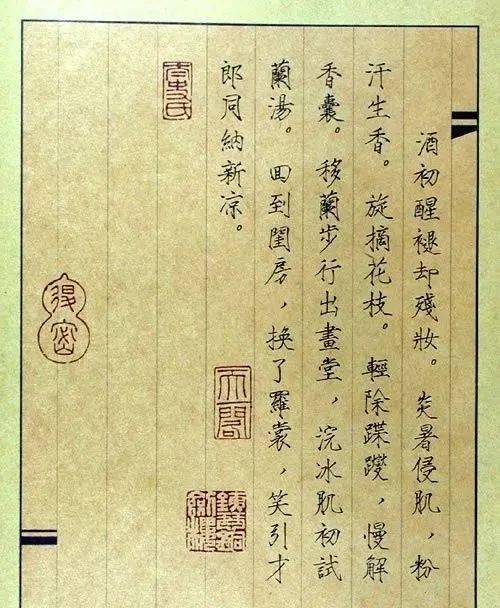 酒初醒褪却殘妝。炎暑侵肌，粉
汗生香。旋摘花枝。輕除蹀躞，慢解
香囊。移蘭步行出畫堂，浣冰肌初試
蘭湯。囬到閨房，換了羅裳，笑引才
郎同納新凉。